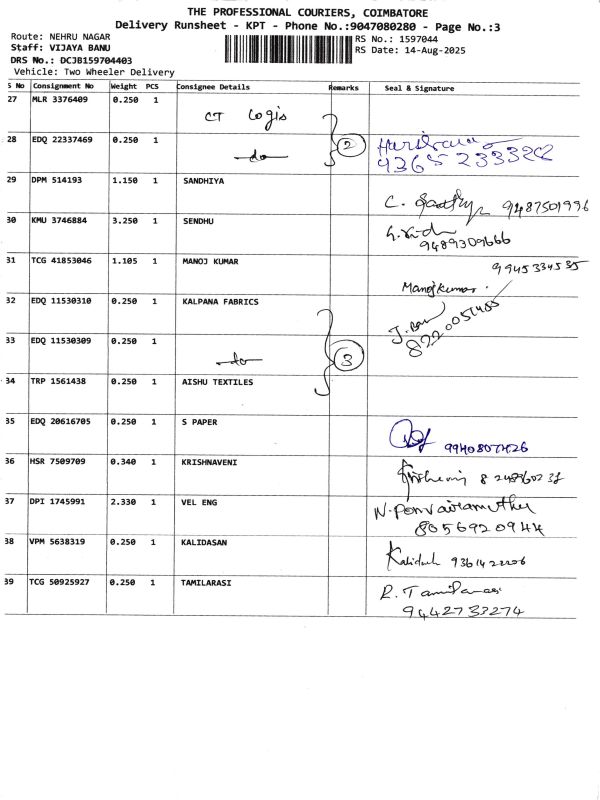 THE PROFESSIONAL COURIERS, COIMBATORE
Delivery Runsheet - KPT - Phone No.:9047080280 - Page No.:3
Route: NEHRU NAGAR
RS No.: 1597044
Staff: VIJAYA BANU
RS Date: 14-Aug-2025
DRS No.: DCJB159704403
Vehicle: Two Wheeler Delivery
S No Consignment No Weight PCS Consignee Details Remarks Seal & Signature
27 MLR 3376409 0.250 1 CT Logis
28 EDQ 22337469 0.250 1 -do- 2
29 DPM 514193 1.150 1 SANDHIYA C. 9487501996
30 KMU 3746884 3.250 1 SENDHU 9489309666
31 TCG 41853046 1.105 1 MANOJ KUMAR 9945334535
Manojkumar.
32 EDQ 11530310 0.250 1 KALPANA FABRICS
33 EDQ 11530309 0.250 1 -do- 3
34 TRP 1561438 0.250 1 AISHU TEXTILES
35 EDQ 20616705 0.250 1 S PAPER
36 HSR 7509709 0.340 1 KRISHNAVENI
37 DPI 1745991 2.330 1 VEL ENG
8056920944
38 VPM 5638319 0.250 1 KALIDASAN
39 TCG 50925927 0.250 1 TAMILARASI R. Tamilarasi
9442733274